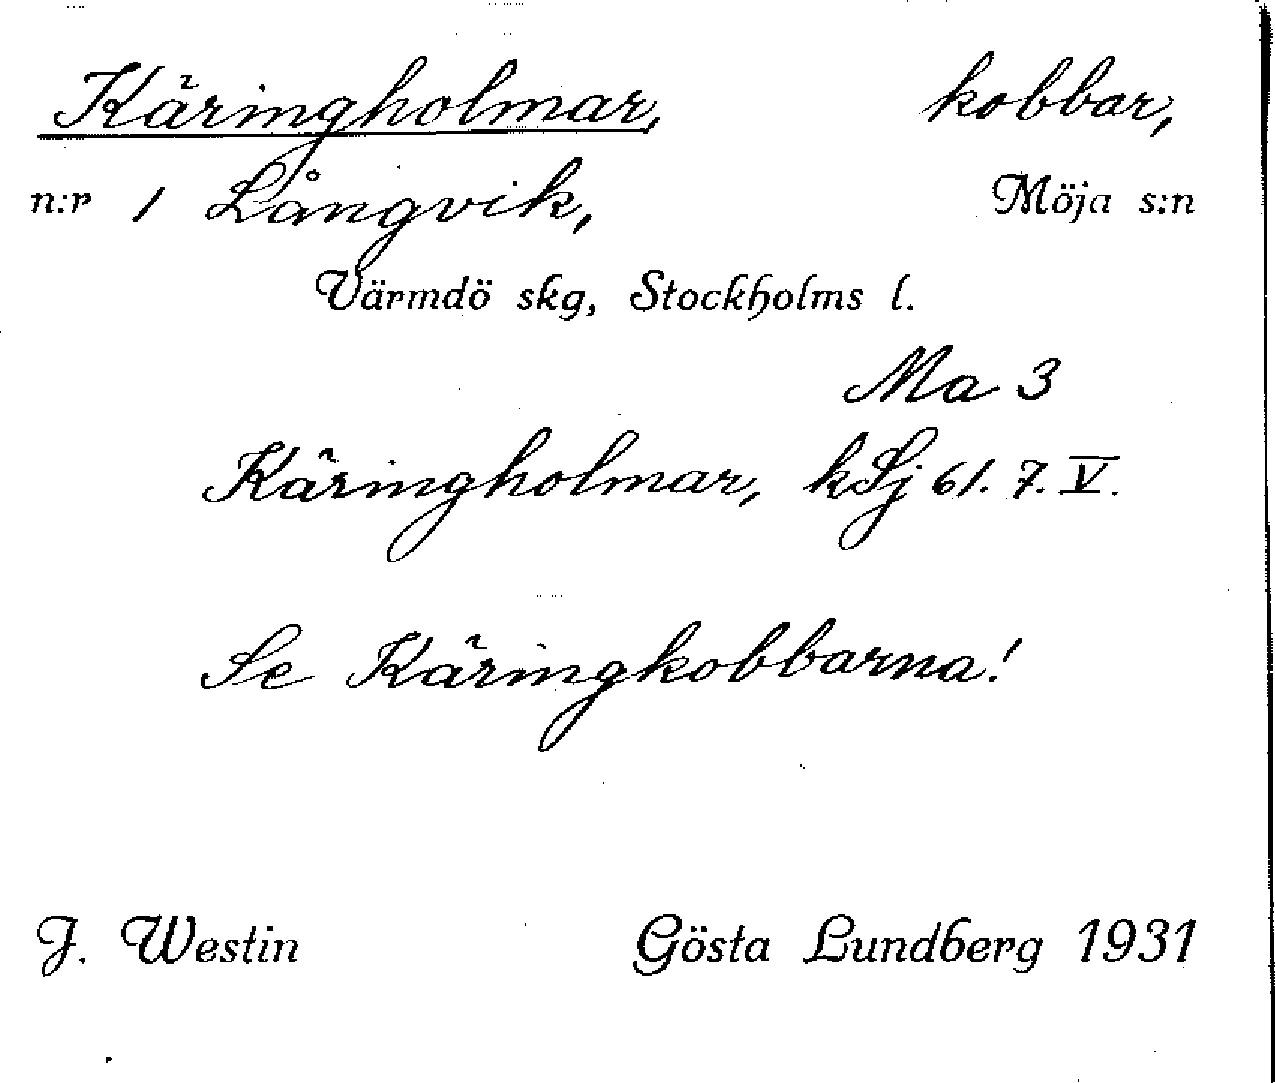 Käringholmar, kobbar,
n:r 1 Långvik, Möja s:n
Värmdö skg, Stockholms l.
Ma 3
Käringholmar, kSj 61. 7. V.
Se Käringkobbarna!
J. Westin Gösta Lundberg 1931